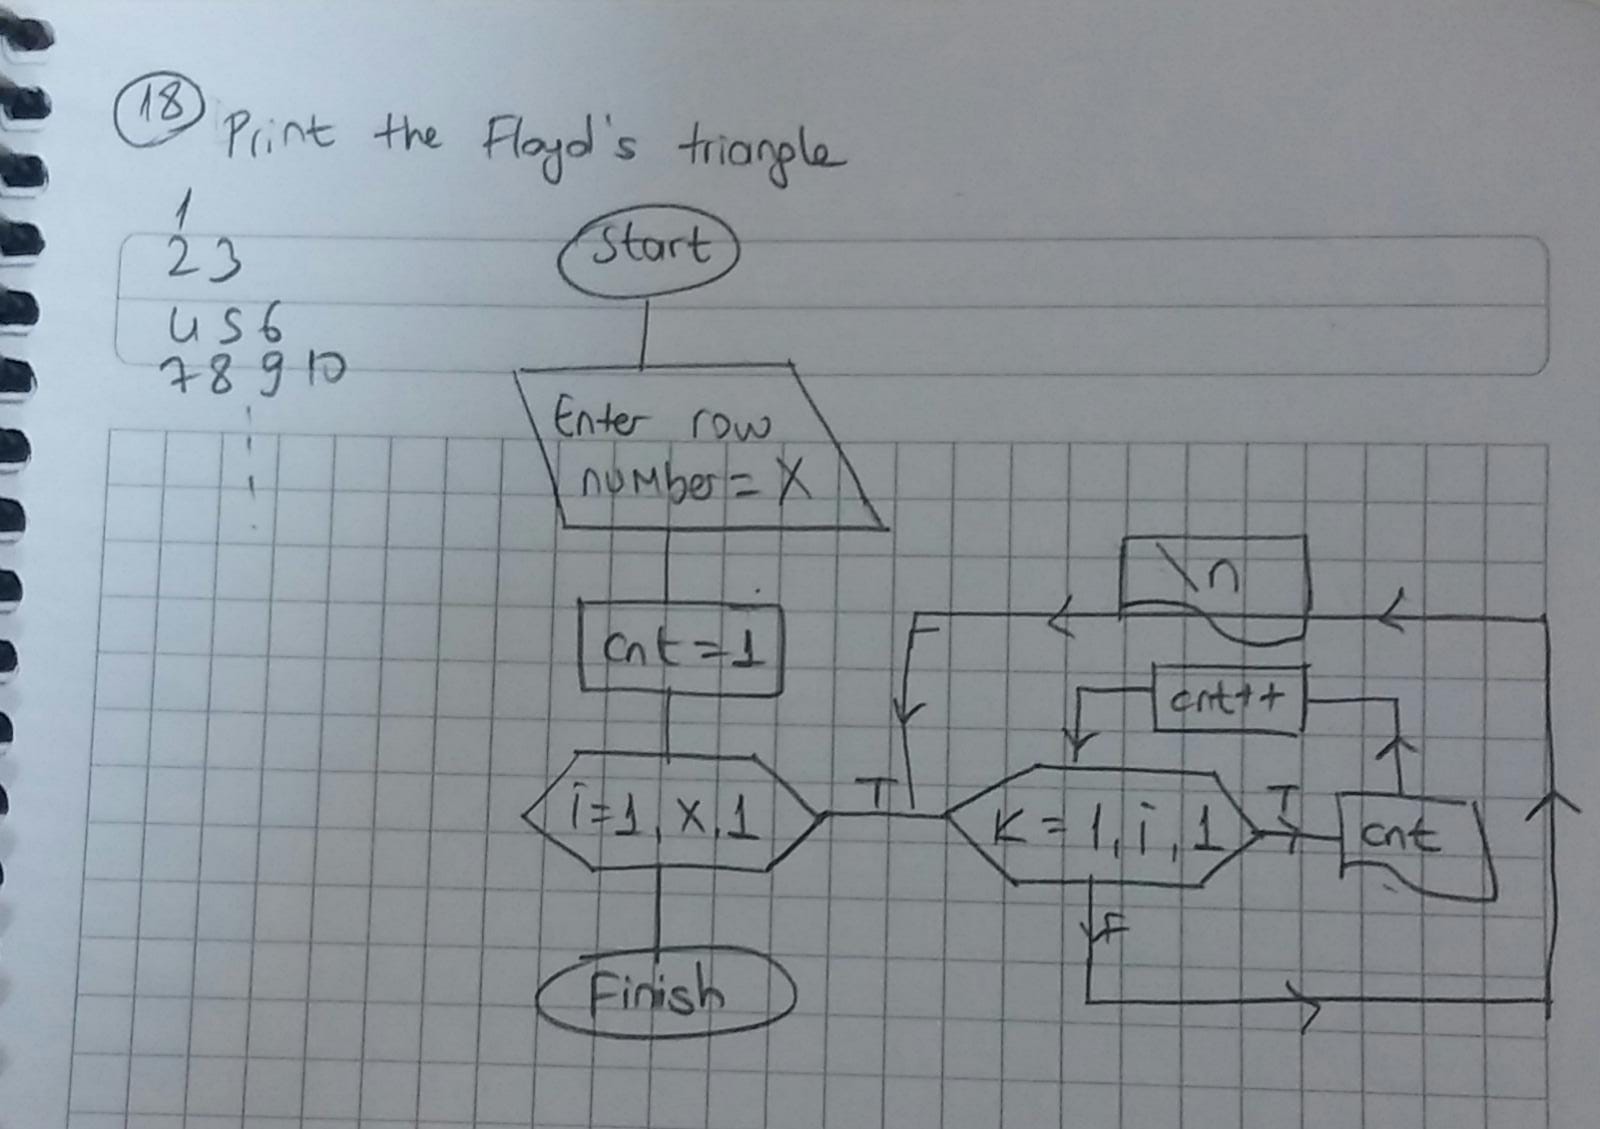 18 Print the Floyd's triangle
1
2 3
4 5 6
7 8 9 10
Start
Enter row
number = X
cnt = 1
i=1, X, 1
T
K = 1, i, 1
T
cnt
cnt++
F
\n
Finish